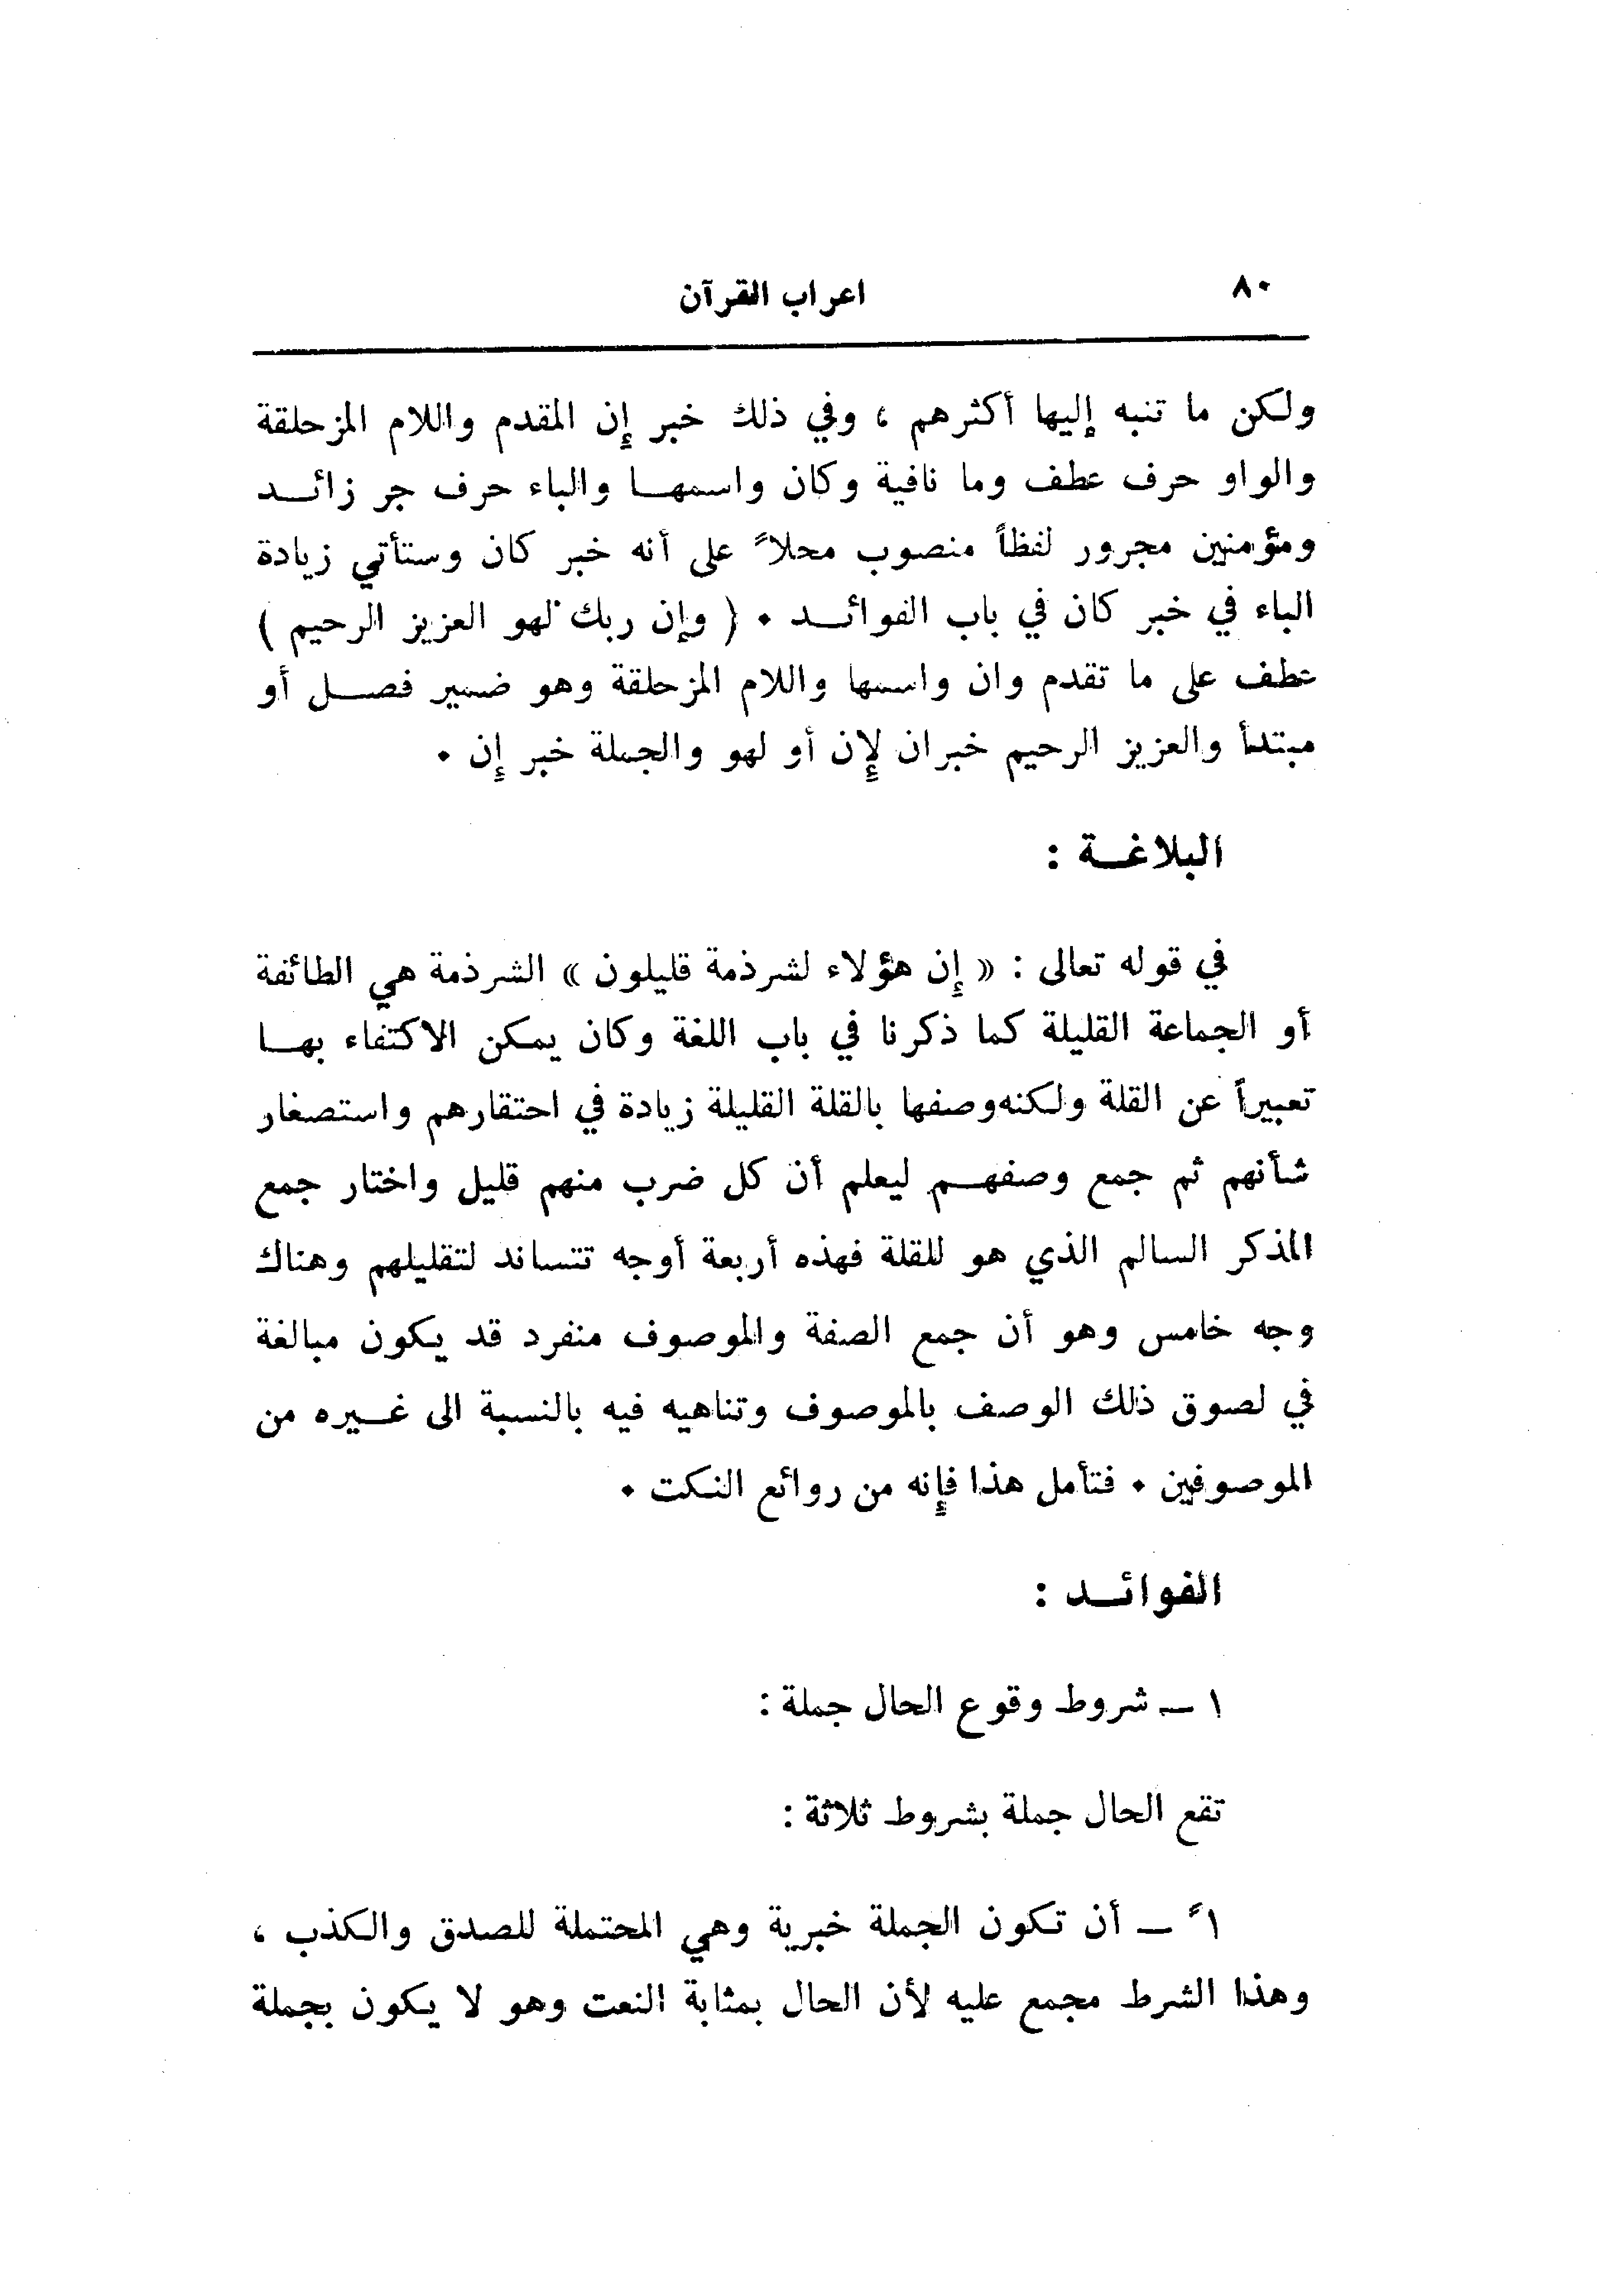 ٨٠
اعراب القرآن
ولكن ما تنبه إليها أكثرهم ، وفي ذلك خبر إن المقدم واللام المزحلقة
والواو حرف عطف وما نافية وكان واسمهــا والباء حرف جر زائــد
ومؤمنين مجرور لفظاً منصوب محلاً على أنه خبر كان وستأتي زيادة
الباء في خبر كان في باب الفوائــد ٠ ( وإن ربك لهو العزيز الرحيم )
عطف على ما تقدم وان واسمها واللام المزحلقة وهو ضمير فصــل أو
مبتدأ والعزيز الرحيم خبران لإن أو لهو والجملة خبر إن ٠
البلاغــة :
في قوله تعالى : « إن هؤلاء لشرذمة قليلون » الشرذمة هي الطائفة
أو الجماعة القليلة كما ذكرنا في باب اللغة وكان يمكن الاكتفاء بهــا
تعبيراً عن القلة ولكنه وصفها بالقلة القليلة زيادة في احتقارهم واستصغار
شأنهم ثم جمع وصفهــم ليعلم أن كل ضرب منهم قليل واختار جمع
المذكر السالم الذي هو للقلة فهذه أربعة أوجه تتساند لتقليلهم وهناك
وجه خامس وهو أن جمع الصفة والموصوف منفرد قد يكون مبالغة
في لصوق ذلك الوصف بالموصوف وتناهيه فيه بالنسبة الى غــيره من
الموصوفين ٠ فتأمل هذا فإنه من روائع النكت ٠
الفوائــد :
١ ــ شروط وقوع الحال جملة :
تقع الحال جملة بشروط ثلاثة :
١ً ــ أن تكون الجملة خبرية وهي المحتملة للصدق والكذب ،
وهذا الشرط مجمع عليه لأن الحال بمثابة النعت وهو لا يكون بجملة